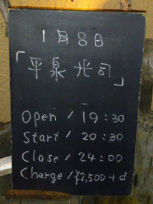 1月8日
「平泉光司」
Open / 19:30
Start / 20:30
Close / 24:00
Charge / ¥2,500 + d